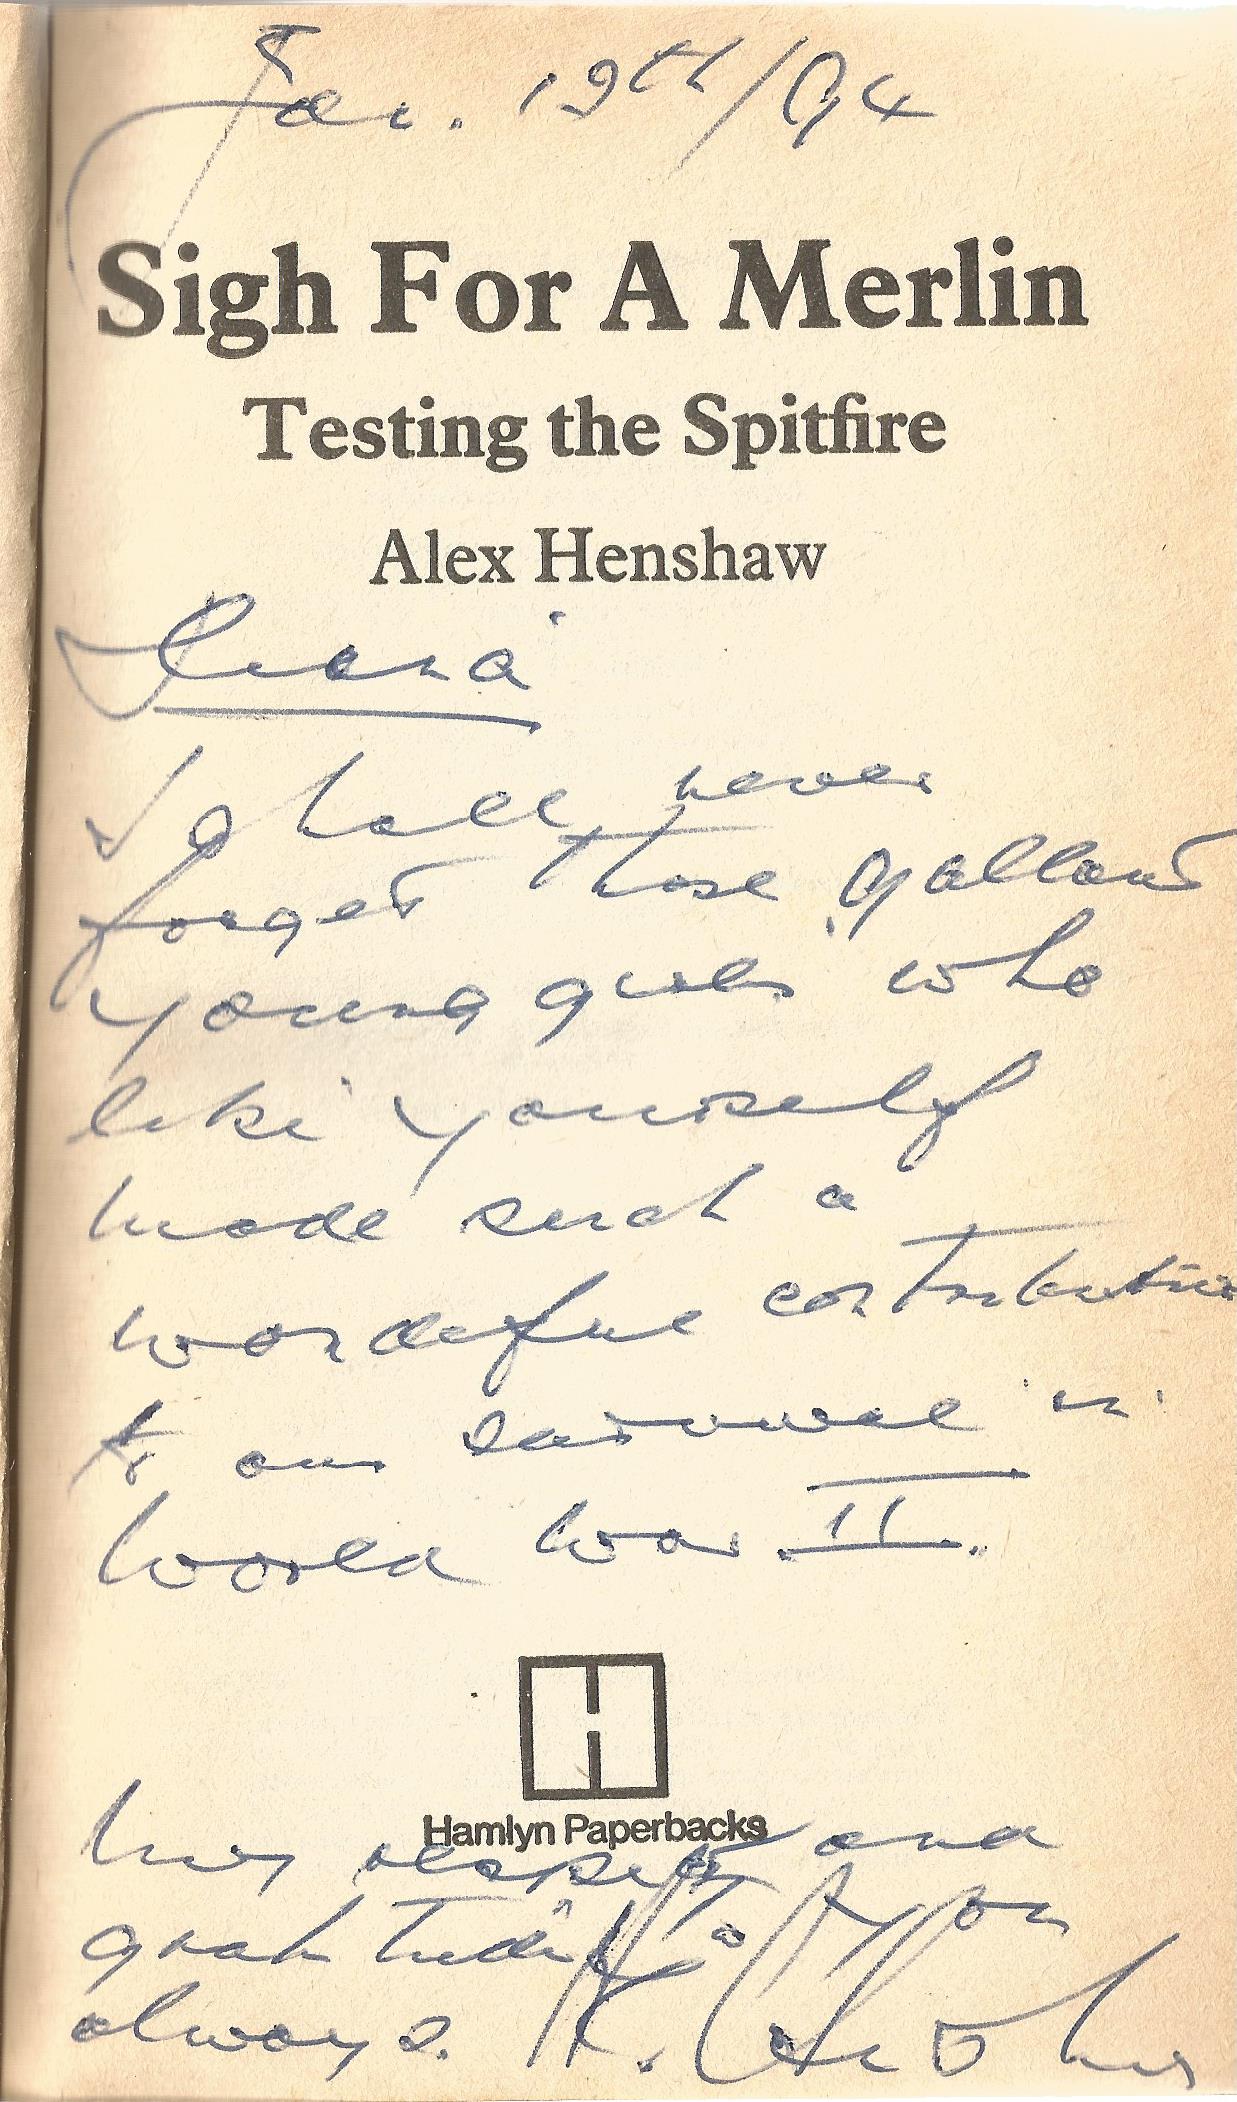 Jan. 19th/94
Sigh For A Merlin
Testing the Spitfire
Alex Henshaw
Diana
I shall never
forget those gallant
young girls who
like yourself
made such a
wondeful contribution
to our survival in
World War II.
Hamlyn Paperbacks
My respect and
gratitude to you
always.